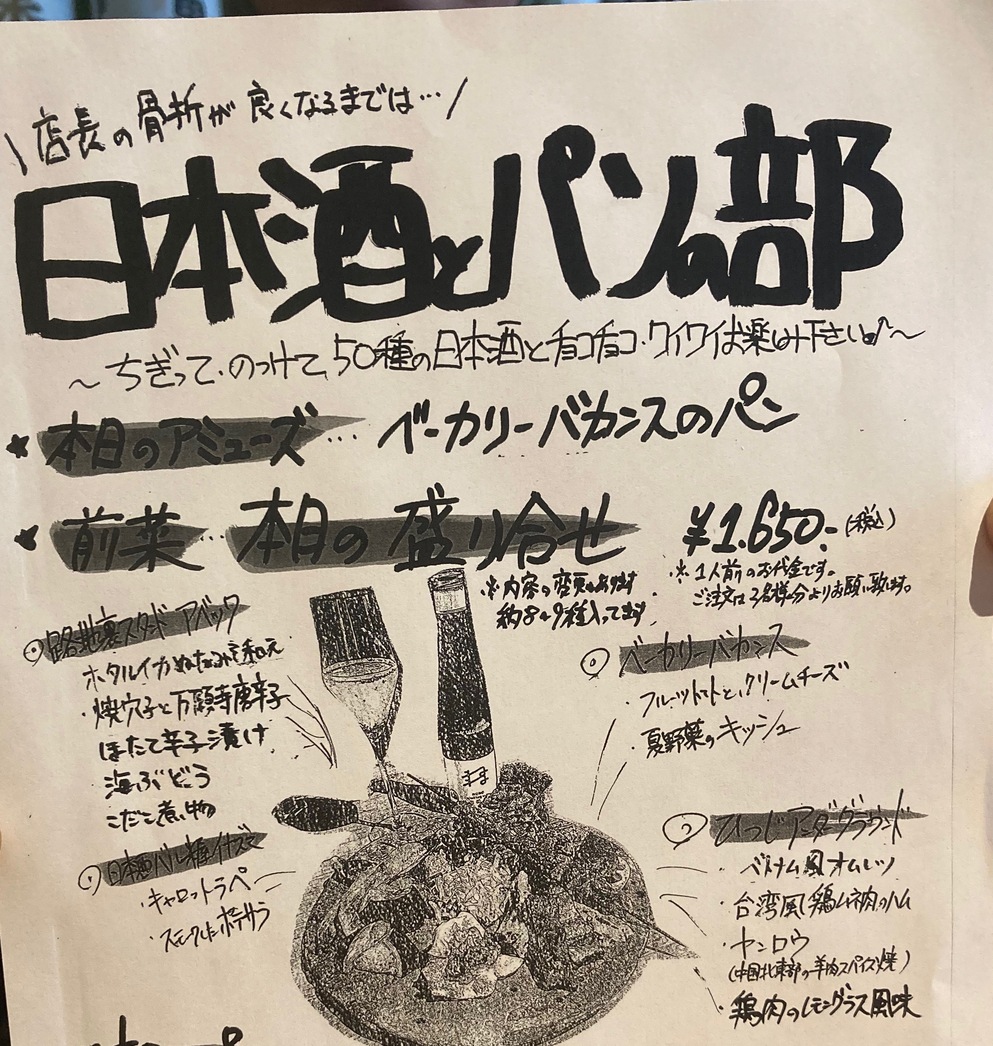 \店長の骨折が良くなるまでは…/
日本酒とパンの部
～ちぎって、のっけて、50種の日本酒とチョコチョコ・ワイワイお楽しみ下さい♪～
★本日のアミューズ… ベーカリーバカンスのパン
★前菜…本日の盛り合せ ¥1.650-(税込)
※内容の変更もあります
約8〜9種入ってます
※1人前のお代金です。
ご注文は2名様分よりお願い致します。
路地裏スタンド アベック
ホタルイカぬたからみ和え
・焼穴子と万願寺唐辛子
ほたて辛子漬け
海ぶどう
こだこ煮物
日本酒バル
・キャロットラペ
・スモークしたポテサラ
ベーカリーバカンス
・フルーツトマトとクリームチーズ
・夏野菜のキッシュ
ひつじアンダーグラウンド
・ベトナム風オムレツ
・台湾風鶏ムネ肉のハム
・ヤンロウ
(中国北東部の羊肉スパイス焼)
・鶏肉のレモングラス風味